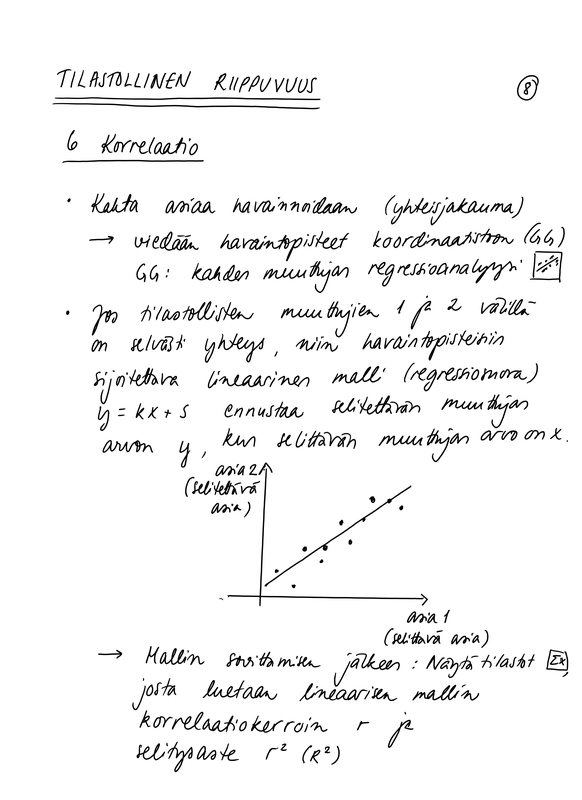 TILASTOLLINEN RIIPPUVUUS
8
6 Korrelaatio
• Kahta asiaa havainnoidaan (yhteisjakauma)
→ viedään havaintopisteet koordinaatistoon (GG)
GG: kahden muuttujan regressioanalyysi
• Jos tilastollisten muuttujien 1 ja 2 välillä
on selvästi yhteys, niin havaintopisteisiin
sijoitettava lineaarinen malli (regressiosuora)
y = kx + s ennustaa selitettävän muuttujan
arvon y, kun selittävän muuttujan arvo on x.
asia 2
(selitettävä
asia)
asia 1
(selittävä asia)
→ Mallin sovittamisen jälkeen: Näytä tilastot Σx,
josta luetaan lineaarisen mallin
korrelaatiokerroin r ja
selitysaste r² (R²)